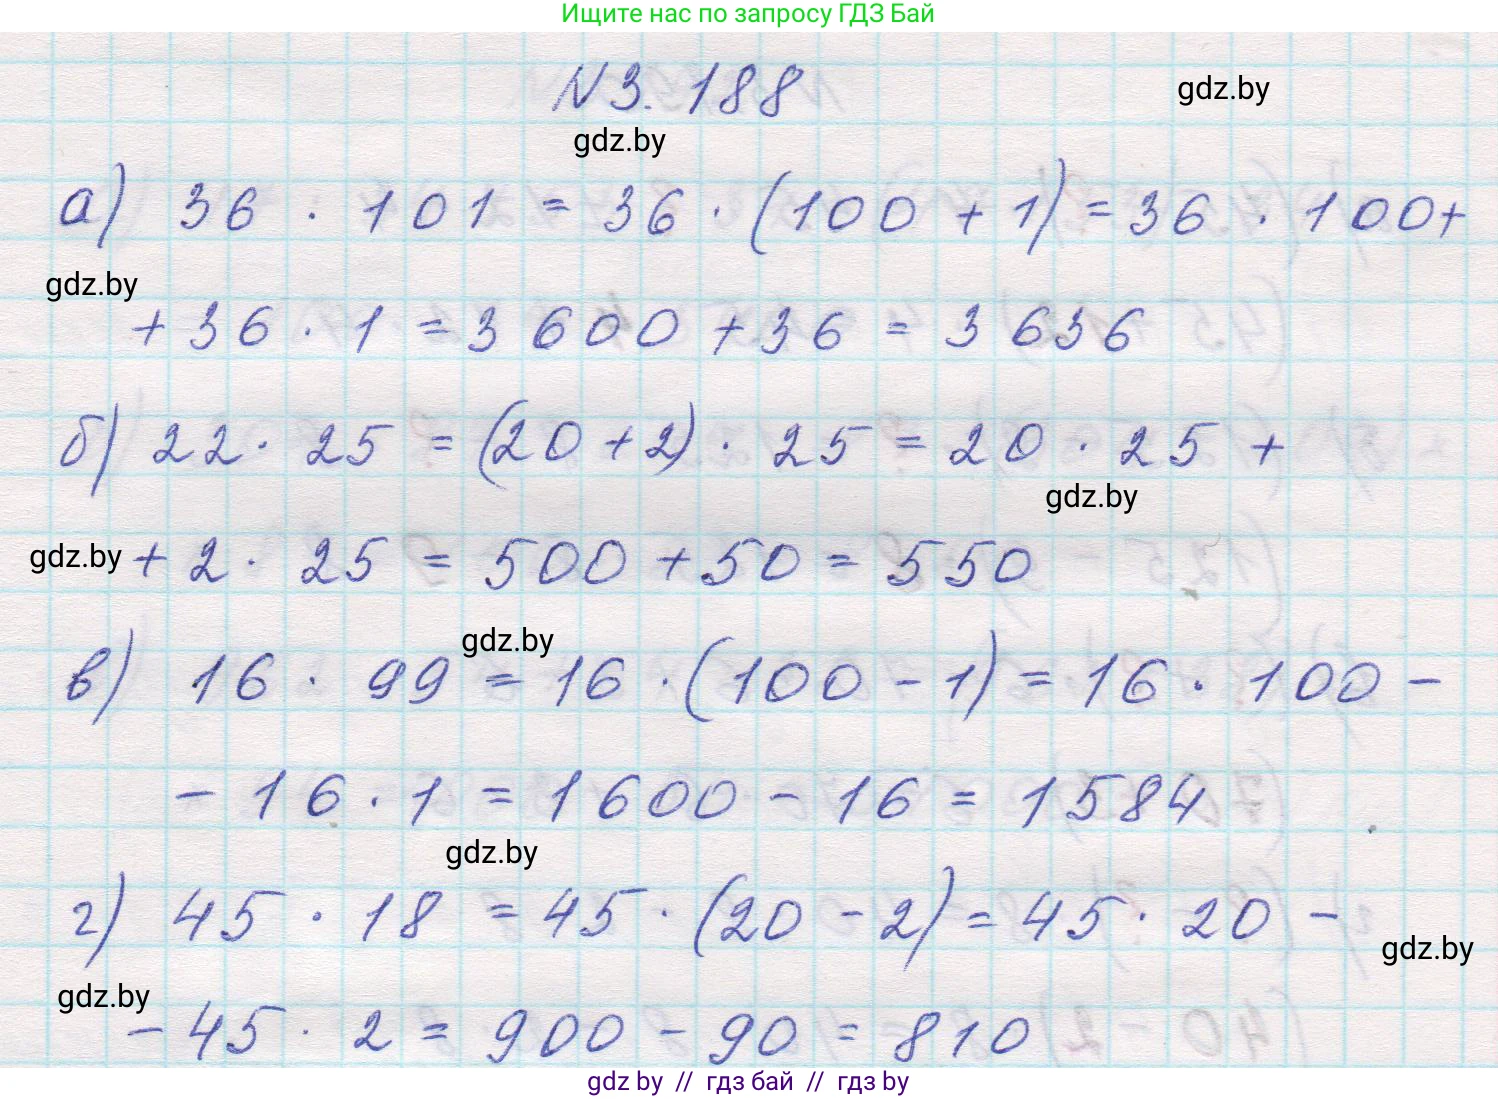 Ищите нас по запросу ГДЗ Бай
N3.188
gdz.by
gdz.by
а) 36 · 101 = 36 · (100 + 1) = 36 · 100 +
gdz.by
+ 36 · 1 = 3600 + 36 = 3636
б) 22 · 25 = (20 + 2) · 25 = 20 · 25 +
gdz.by
gdz.by
+ 2 · 25 = 500 + 50 = 550
gdz.by
в) 16 · 99 = 16 · (100 - 1) = 16 · 100 -
- 16 · 1 = 1600 - 16 = 1584
gdz.by
г) 45 · 18 = 45 · (20 - 2) = 45 · 20 -
gdz.by
gdz.by
- 45 · 2 = 900 - 90 = 810
gdz by // гдз бай // гдз by